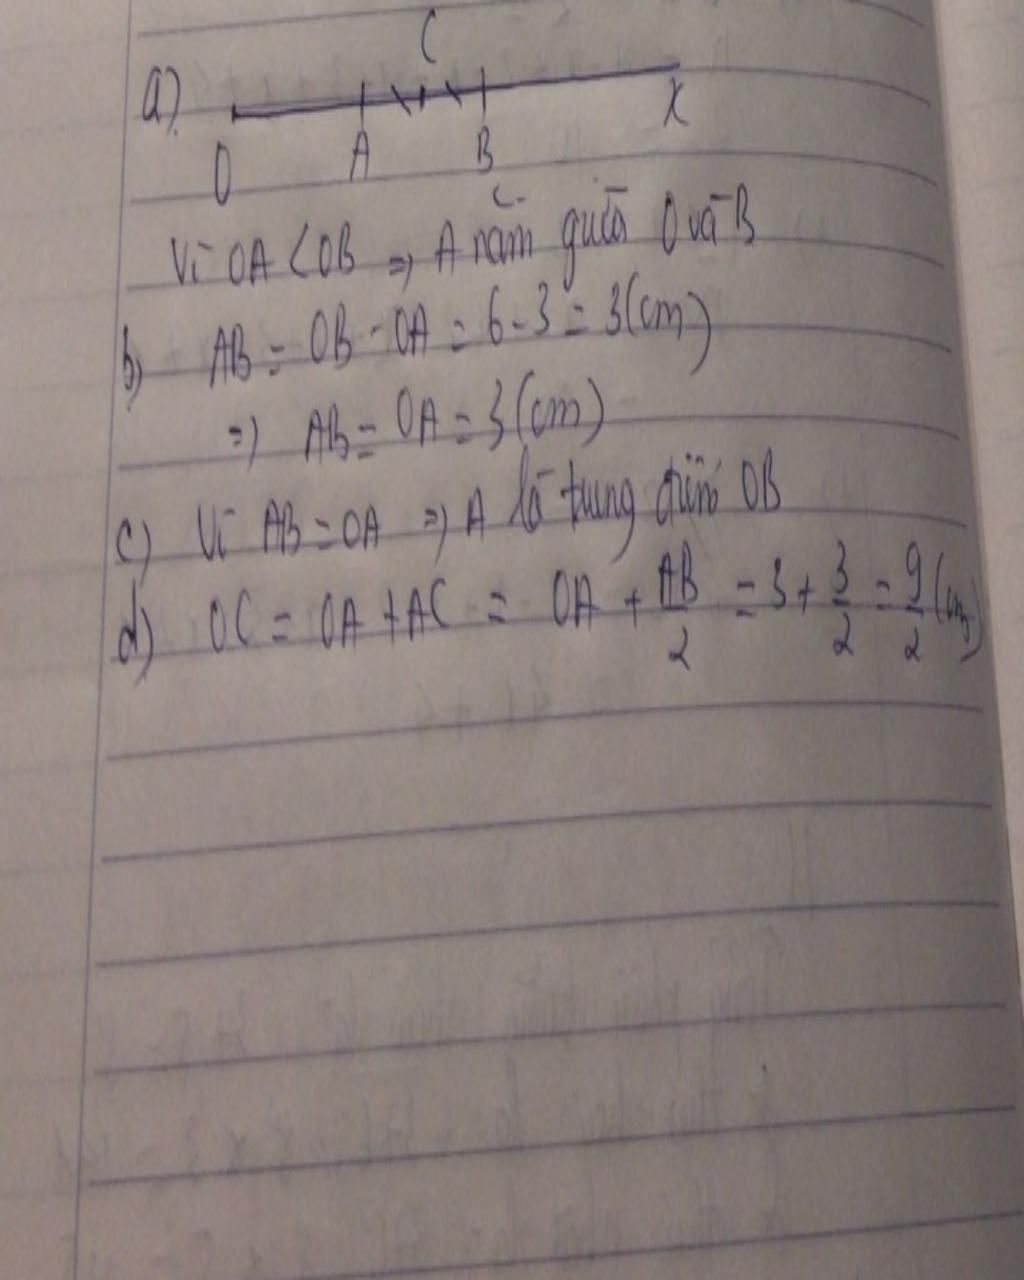 C
a)
O A B x
Vì OA < OB => A nằm giữa O và B
b) AB = OB - OA = 6 - 3 = 3(cm)
=> AB = OA = 3(cm)
c) Vì AB = OA => A là trung điểm OB
d) OC = OA + AC = OA + AB/2 = 3 + 3/2 = 9/2 (cm)